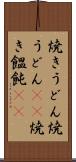 焼きうどん焼
うどん焼
き饂飩